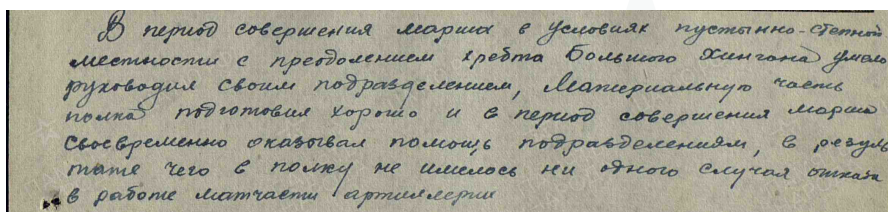 В период совершения марша в условиях пустынно-степной
местности с преодолением хребта Большого Хингана умело
руководил своим подразделением, Материальную часть
полка подготовил хорошо и в период совершения марша
своевременно оказывал помощь подразделениям, в резуль
тате чего в полку не имелось ни одного случая отказа
в работе матчасти артиллерии